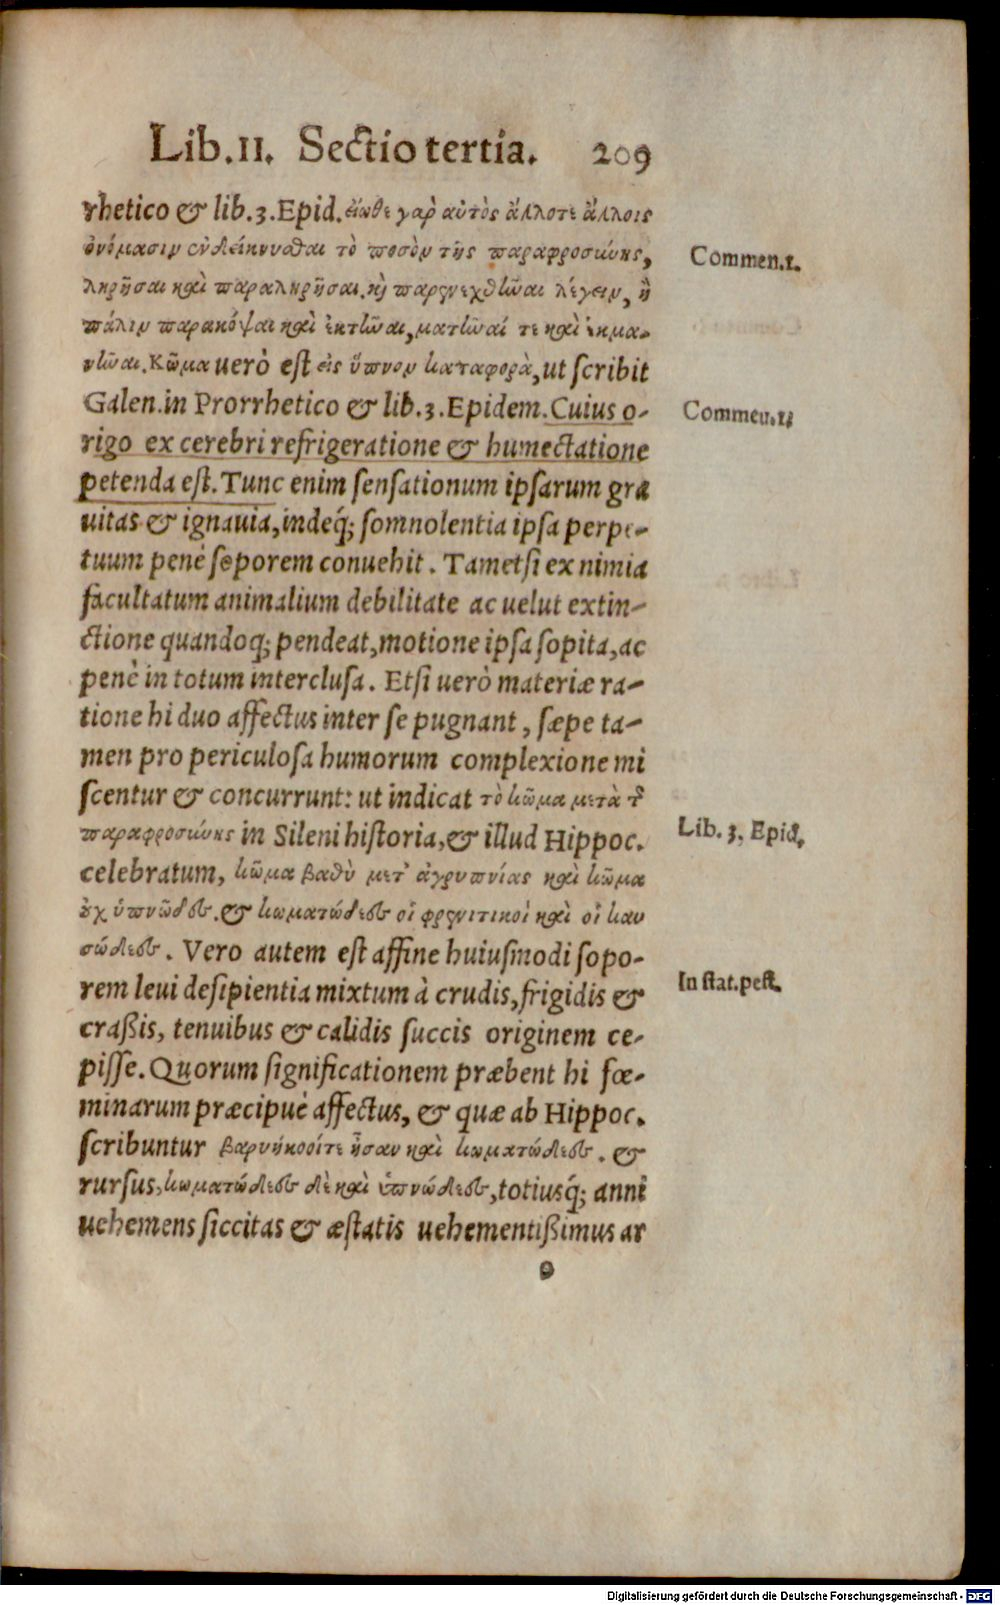 Lib.II. Sectio tertia. 209
rhetico & lib.3.Epid. εἴωθε γὰρ αὐτὸς ἄλλοτε ἄλλοις
ὀνόμασιν ἐνδείκνυσθαι τὸ ποσὸν τῆς παραφροσύνης,
Commen.1.
ληρῆσαι καὶ παραληρῆσαι, καὶ παρενεχθῆναι λέγειν, ἢ
πάλιν παρακόψαι καὶ ἐκστῆναι, μανῆναί τε καὶ ἐκμα-
νῆναι. Κῶμα uerò est εἰς ὕπνον καταφορὰ, ut scribit
Galen.in Prorrhetico & lib.3.Epidem. Cuius o-
Commen.1.
rigo ex cerebri refrigeratione & humectatione
petenda est. Tunc enim sensationum ipsarum gra
uitas & ignauia, indeq́; somnolentia ipsa perpe-
tuum penè soporem conuehit. Tametsi ex nimia
facultatum animalium debilitate ac uelut extin-
ctione quandoq; pendeat, motione ipsa sopita, ac
penè in totum interclusa. Etsi uerò materiæ ra-
tione hi duo affectus inter se pugnant, sæpe ta-
men pro periculosa humorum complexione mi
scentur & concurrunt: ut indicat τὸ κῶμα μετὰ τ῀
παραφροσύνης in Sileni historia, & illud Hippoc.
Lib. 3. Epid.
celebratum, κῶμα βαθὺ μετ' ἀγρυπνίας καὶ κῶμα
οὐχ ὑπνῶδες. & κωματώδεες οἱ φρενιτικοὶ καὶ οἱ καυ
σώδεες. Vero autem est affine huiusmodi sopo-
rem leui desipientia mixtum à crudis, frigidis &
In stat.pest.
craßis, tenuibus & calidis succis originem ce-
pisse. Quorum significationem præbent hi fœ-
minarum præcipuè affectus, & quæ ab Hippoc.
scribuntur βαρυήκοοί τε ἦσαν καὶ κωματώδεες. &
rursus, κωματώδεες δὲ καὶ ὑπνώδεες, totiusq́; anni
uehemens siccitas & æstatis uehementißimus ar
o
Digitalisierung gefördert durch die Deutsche Forschungsgemeinschaft - DFG